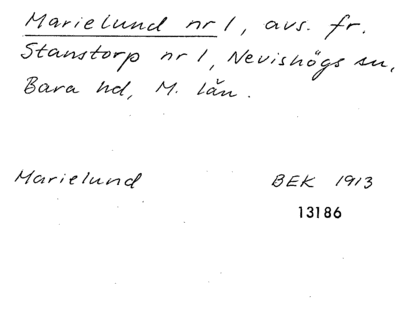 Marielund nr 1, avs. fr.
Stanstorp nr 1, Nevishögs sn,
Bara hd, M. län.
Marielund BEK 1913
13186